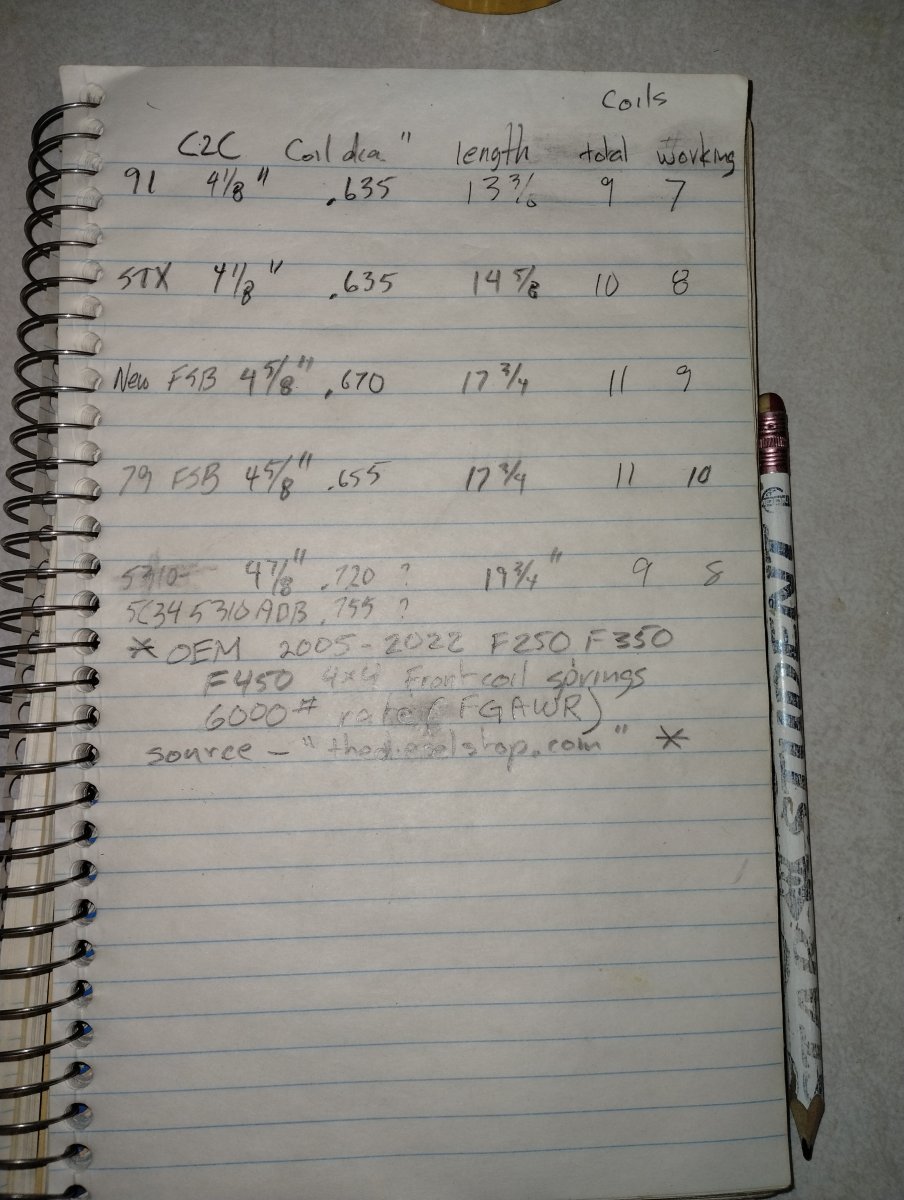 Coils
C2C Coil dia " length total working
91 4 1/8 " .635 13 3/8 9 7
STX 4 1/8 " .635 14 5/8 10 8
New FSB 4 5/8 " .670 17 3/4 11 9
79 FSB 4 5/8 " .655 17 3/4 11 10
5310 4 7/8 " .720 ? 19 3/4 " 9 8
5C34 5310 ADB .755 ?
* OEM 2005-2022 F250, F350
F450 4x4 front coil springs
6000# rate (FGAWR)
source - "thedieselstop.com" *